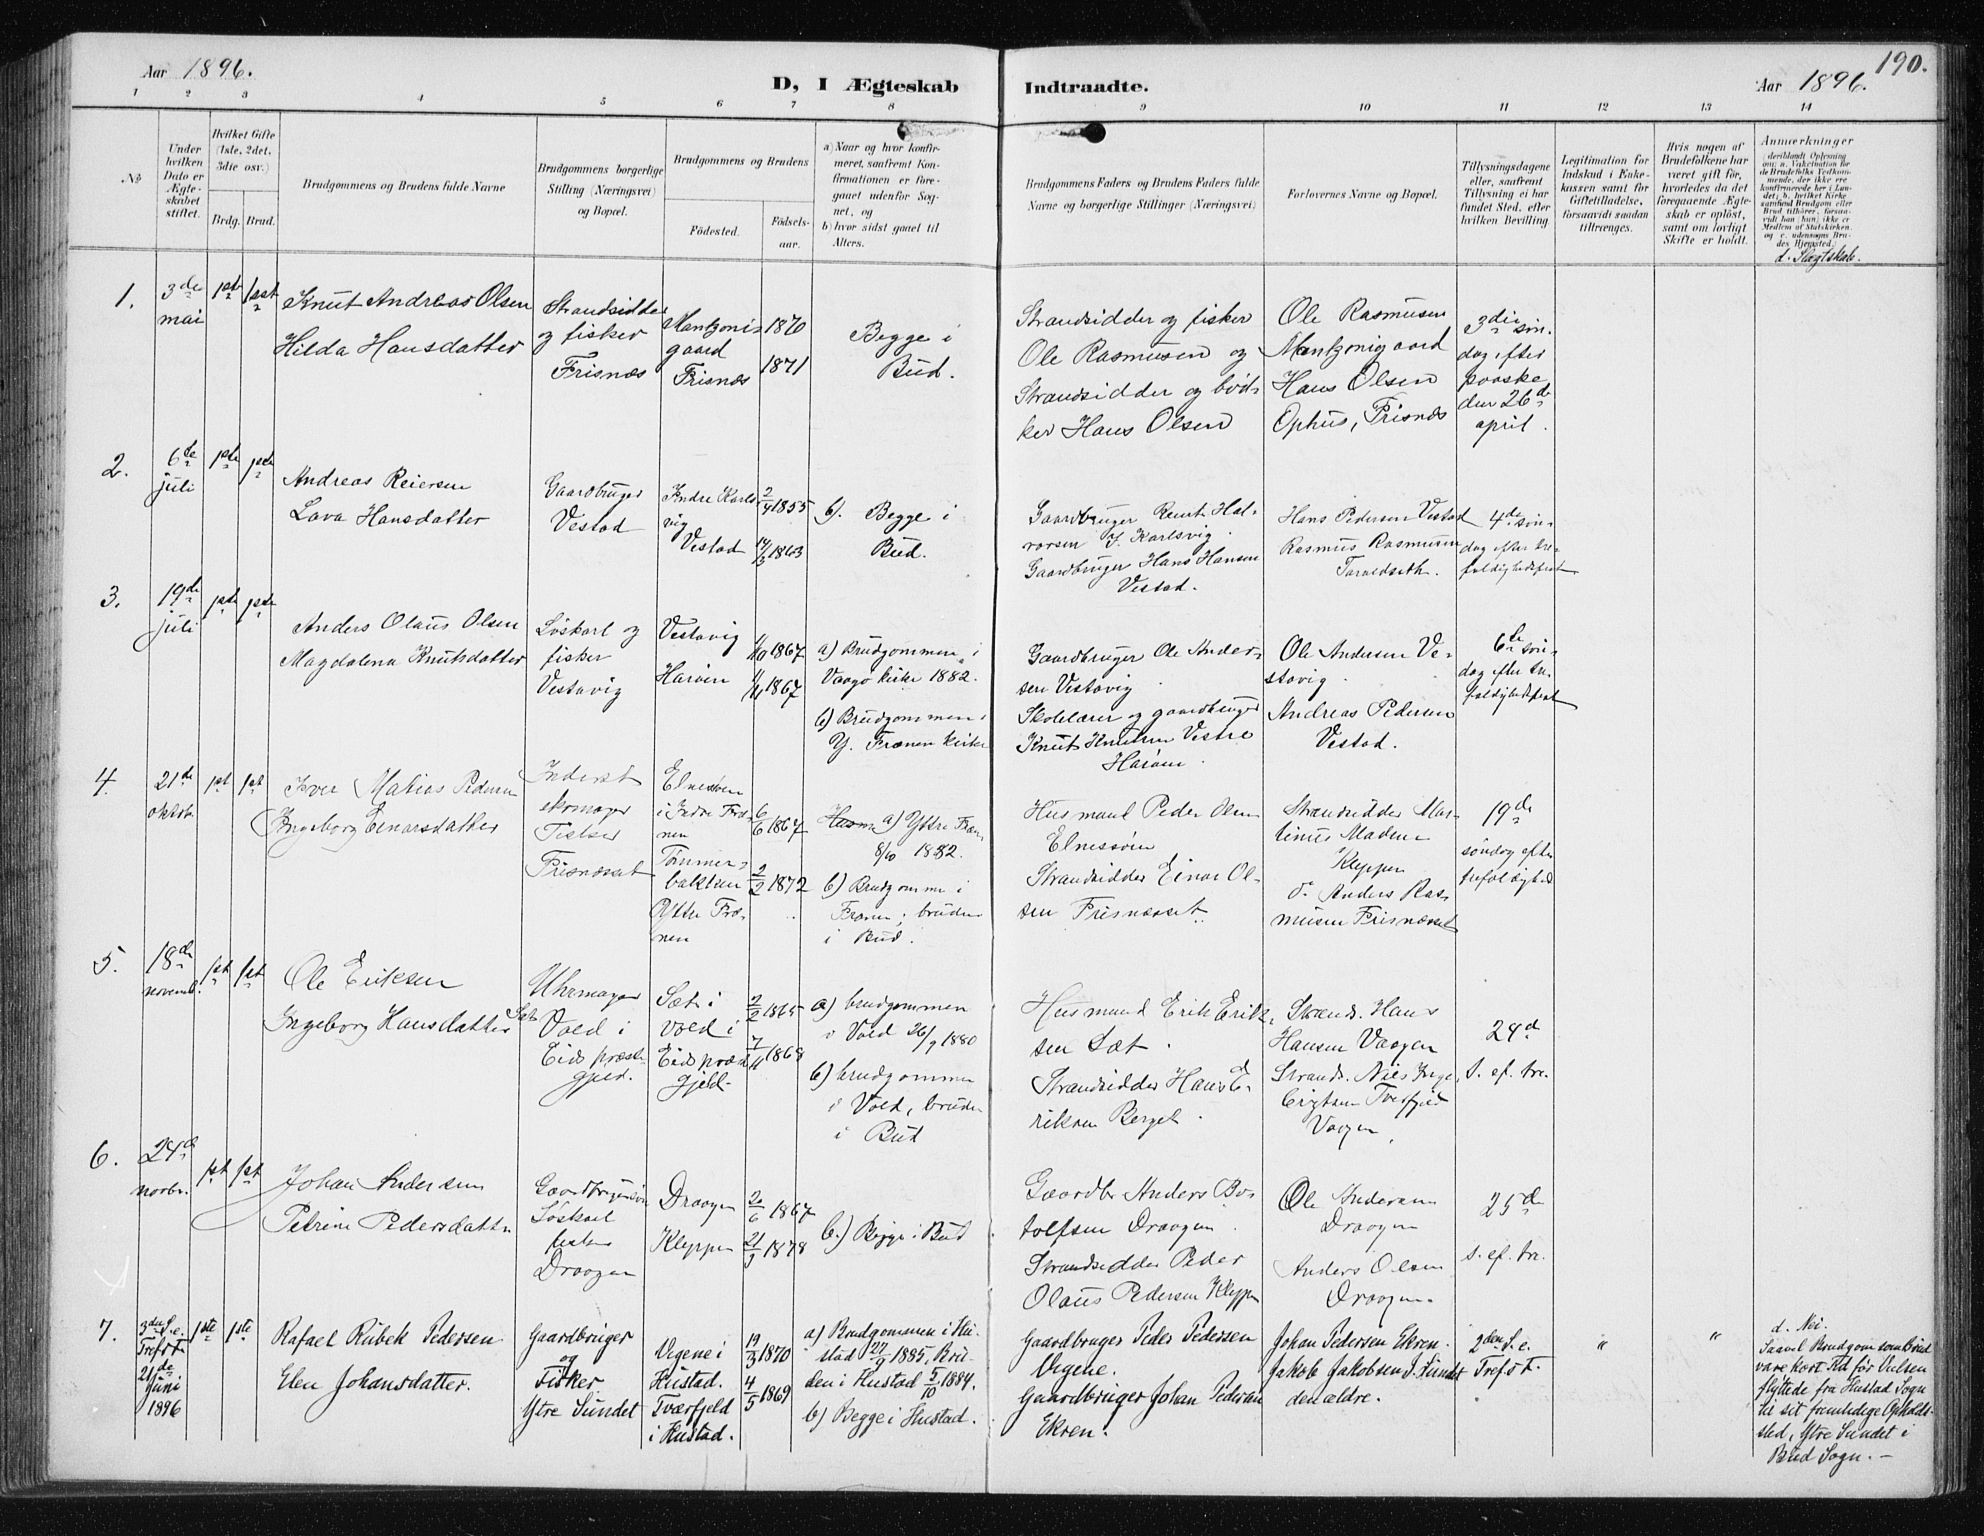 190.
Aar 1896.
D, I Ægteskab Indtraadte.
Aar 1896.
1 2 3 4 5 6 7 8 9 10 11 12 13 14
No
Under hvilken Dato er Ægteskabet stiftet.
Hvilket Gifte (1ste, 2det, 3die osv.)
Brdg. Brud.
Brudgommens og Brudens fulde Navne
Brudgommens borgerlige Stilling (Næringsvei) og Bopæl.
Brudgommens og Brudens
Fødested.
Fødsels-aar.
a) Naar og hvor konfirmeret, saafremt Konfirmationen er foregaaet udenfor Sognet, og
b) hvor sidst gaaet til Alters.
Brudgommens Faders og Brudens Faders fulde Navne og borgerlige Stillinger (Næringsvei)
Forlovernes Navne og Bopæl.
Tillysningsdagene eller, saafremt Tillysning ei har fundet Sted, efter hvilken Bevilling
Legitimation for Indskud i Enkekassen samt for Giftetilladelse, forsaavidt saadan tiltrænges.
Hvis nogen af Brudefolkene har været gift før, hvorledes da det foregaaende Ægteskab er opløst, samt om lovligt Skifte er holdt.
Anmerkninger
d. Slægtskab.
1.
3de mai
1ste
1ste
Knut Andreas Olsen
Hilda Hansdatter
Strandsidder
og fisker
Frisnæs
gaard
Frisnæs
1870
1871
Begge i
Bud.
Strandsidder og fisker
Ole Rasmusen og
Strandsidder og bød-
ker Hans Olsen
Ole Rasmusen
Hans Olsen
Ophus, Frisnæs
3die søn-
dag efter
paaske
den 26de
april.
2.
6te juli
1ste
1ste
Andreas Reiersen
Lava Hansdatter
Gaardbruger
Vestad
Indre Karls-
vig
Vestad
2/4 1855
14/3 1863
b). Begge i
Bud.
Gaardbruger Knut Hal-
vorsen I. Karlsvig.
Gaardbruger Hans Hansen
Vestad.
Hans Pedersen Vestad
Rasmus Rasmusen
Taraldseth.
4de søn-
dag efter tre-
foldighedsfest
3.
19de juli
1ste
1ste
Anders Olaus Olsen
Magdalena Knutsdatter
Løskarl og
fisker
Vestavig
Vestavig
Harøen
1/10 1867
1/11 1867
a) Brudgommen i
Vaagø kirke 1882.
b) Brudgommen i
Y. Frænen kirke
Gaardbruger Ole Ander-
sen Vestavig
Skolelærer og gaardbruger
Knut Knutsen Vestre
Harøen.
Ole Andersen Ve-
stavig.
Andreas Pedersen
Vestad.
6te søn-
dag efter tre-
foldighedsfest
4.
21de oktob.
1st
1st
Iver Matias Pedersen
Ingeborg Einarsdatter
Inderst
skomager
Frisnæsset
Elnesøen
i Indre Fræ-
nen
Ytre Fræ-
nen
6/6 1867
2/2 1872
a) Yttre Fræn
8/10 1882.
b) Brudgommen i
Frænen; bruden
i Bud.
Husmand Peder Olsen
Elnesøen
Strandsidder Einar Ol-
sen Frisnæsset
Strandsidder Mar-
tinus Madsen
Kleppen
Anders Ras-
musen Frisnæsset
19de
søndag efter
trefoldighed
5.
18de novemb.
1st
1st
Ole Eriksen
Ingeborg Hansdatter
Uhrmager
Sæt
Vold i
Eids præste-
gjeld.
Sæt i
Vold i
Eids præste-
gjeld.
2/2 1865
7/11 1868
a) brudgommen
i Vold 26/9 1880
b) brudgommen
i Vold, bruden
i Bud
Husmand Erik Erik-
sen Sæt.
Strandsidder Hans E-
riksen Berget.
Strands. Hans
Hansen Vaagen
Strands. Nils Inge-
brigtsen Tverfjeld
Vaagen.
24d
S. ef. tre.
6.
24d novbr.
1st
1st
Johan Andersen
Petrine Pedersdatter
Gaardbrugersøn
Løskarl
fisker
Draagen
Draagen
Kleppen
20/6 1867
21/3 1878
b.) Begge i Bud
Gaardbr Anders Bo-
tolfsen Draagen.
Strandsidder Peder
Olaus Pedersen Kleppen
Ole Andersen
Draagen
Anders Olsen
Draagen.
25d
s. ef. tre.
7.
3die S. e.
Tref. F.
21de
Juni
1896
1ste
1ste
Rafael Rübek Pedersen
Elen Johansdatter.
Gaardbruger
og
Fisker
Ytre Sundet
Vegene i
Hustad.
Tværfjeld
i Hustad.
19/3 1870
4/5 1869
a) Brudgommen i Hu-
stad 27/9 1885, Bru-
den i Hustad 5/10 1884.
b) Begge i Hustad.
Gaardbruger Peder Pedersen
Vegene.
Gaardbruger Johan Pedersen
Ekren.
Johan Pedersen Ekren.
Jakob Jakobsen I. Sundet
den ældre.
2den S. e.
Tref. F.
"
"
d. Nei.
Saavel Brudgom som Brud
vare kort Tid før Vielsen
flyttede fra Hustad Sogn
til sit fremtidige Opholds-
sted, Ytre Sundet i
Bud Sogn.—